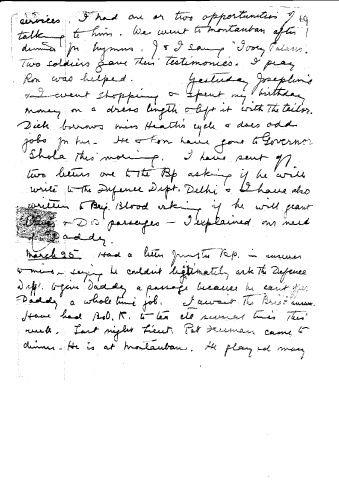 services. I had one or two opportunities of
talking to him. We went to Montauban after
dinner for hymns. J & I sang 'Ivory Palaces.'
Two soldiers gave their testimonies. I pray
Ron was helped. Yesterday Josephine
and I went shopping & spent my birthday
money on a dress length & left it with the tailor.
Dick borrows Miss Heath's cycle & does odd
jobs for her. He & Ron have gone to Governor
Shola this morning. I have sent off
two letters one to the Bp asking if he will
write to the Defence Dept. Delhi & I have also
written to Brig. Blood asking if he will grant
& passages — I explained our need
Daddy.
March 25th Had a letter from the Bp. in answer
to mine — saying he couldn't legitimately ask the Defence
Dept. to give Daddy a passage because he can't give
Daddy a whole time job. I await the Brig's answer.
Have had Bob. K. to tea etc several times this
week. Last night Lieut. Pat came to
dinner. He is at Montauban. He played many